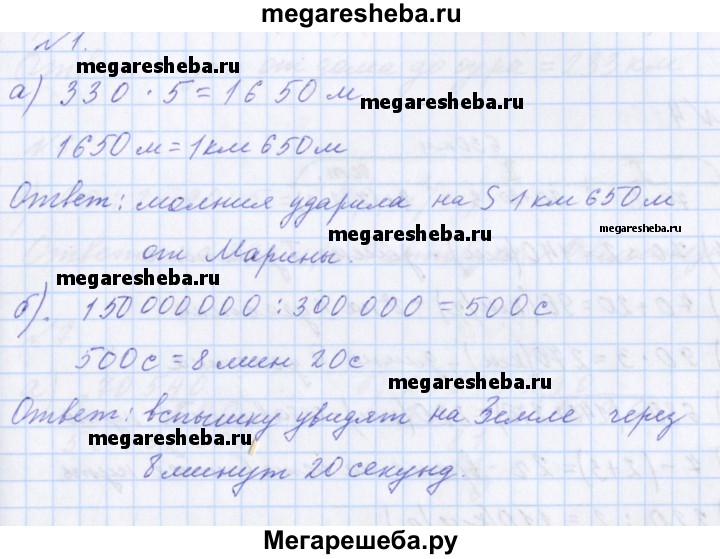 megaresheba.ru
№1.
megaresheba.ru
а) 330 · 5 = 1650 м
megaresheba.ru
1650 м = 1 км 650 м
Ответ: молния ударила на S 1 км 650 м
megaresheba.ru
megaresheba.ru
от Марины.
megaresheba.ru
б). 150 000 000 : 300 000 = 500 с
500 с = 8 мин 20 с
megaresheba.ru
Ответ: вспышку увидят на Земле через
megaresheba.ru
8 минут 20 секунд.
Мегарешеба.ру